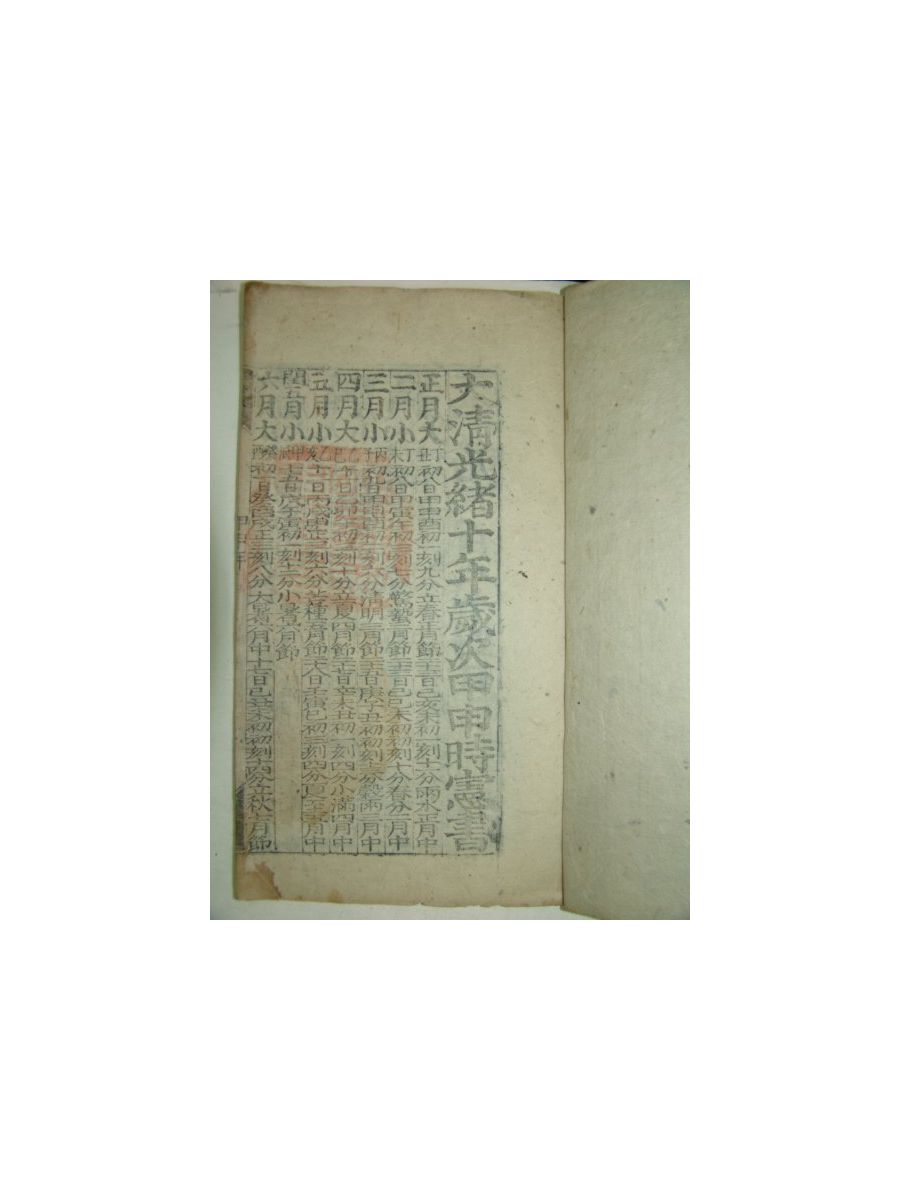 大清光緖十年歲次甲申時憲書
正月大 初八日甲申酉初一刻九分立春正月節 二十三日己亥未初一刻十一分雨水正月中
二月小 初八日甲寅午初初刻七分驚蟄二月節 二十三日己巳未初初刻十分春分二月中
三月小 初九日 初刻六分淸明三月節 二十五日庚子 初初刻十二分穀雨三月中
四月大 日己卯初一刻十分立夏四月節 二十六日辛未丑初一刻四分小滿四月中
五月小 十二日丙戌 正一刻六分芒種五月節 二十八日壬寅巳初三刻四分夏至五月中
閏五月小 十五日戊午寅初一刻十二分小暑六月節
六月大 初一日癸酉戌正三刻八分大暑六月中 十七日己丑未初初刻十四分立秋七月節